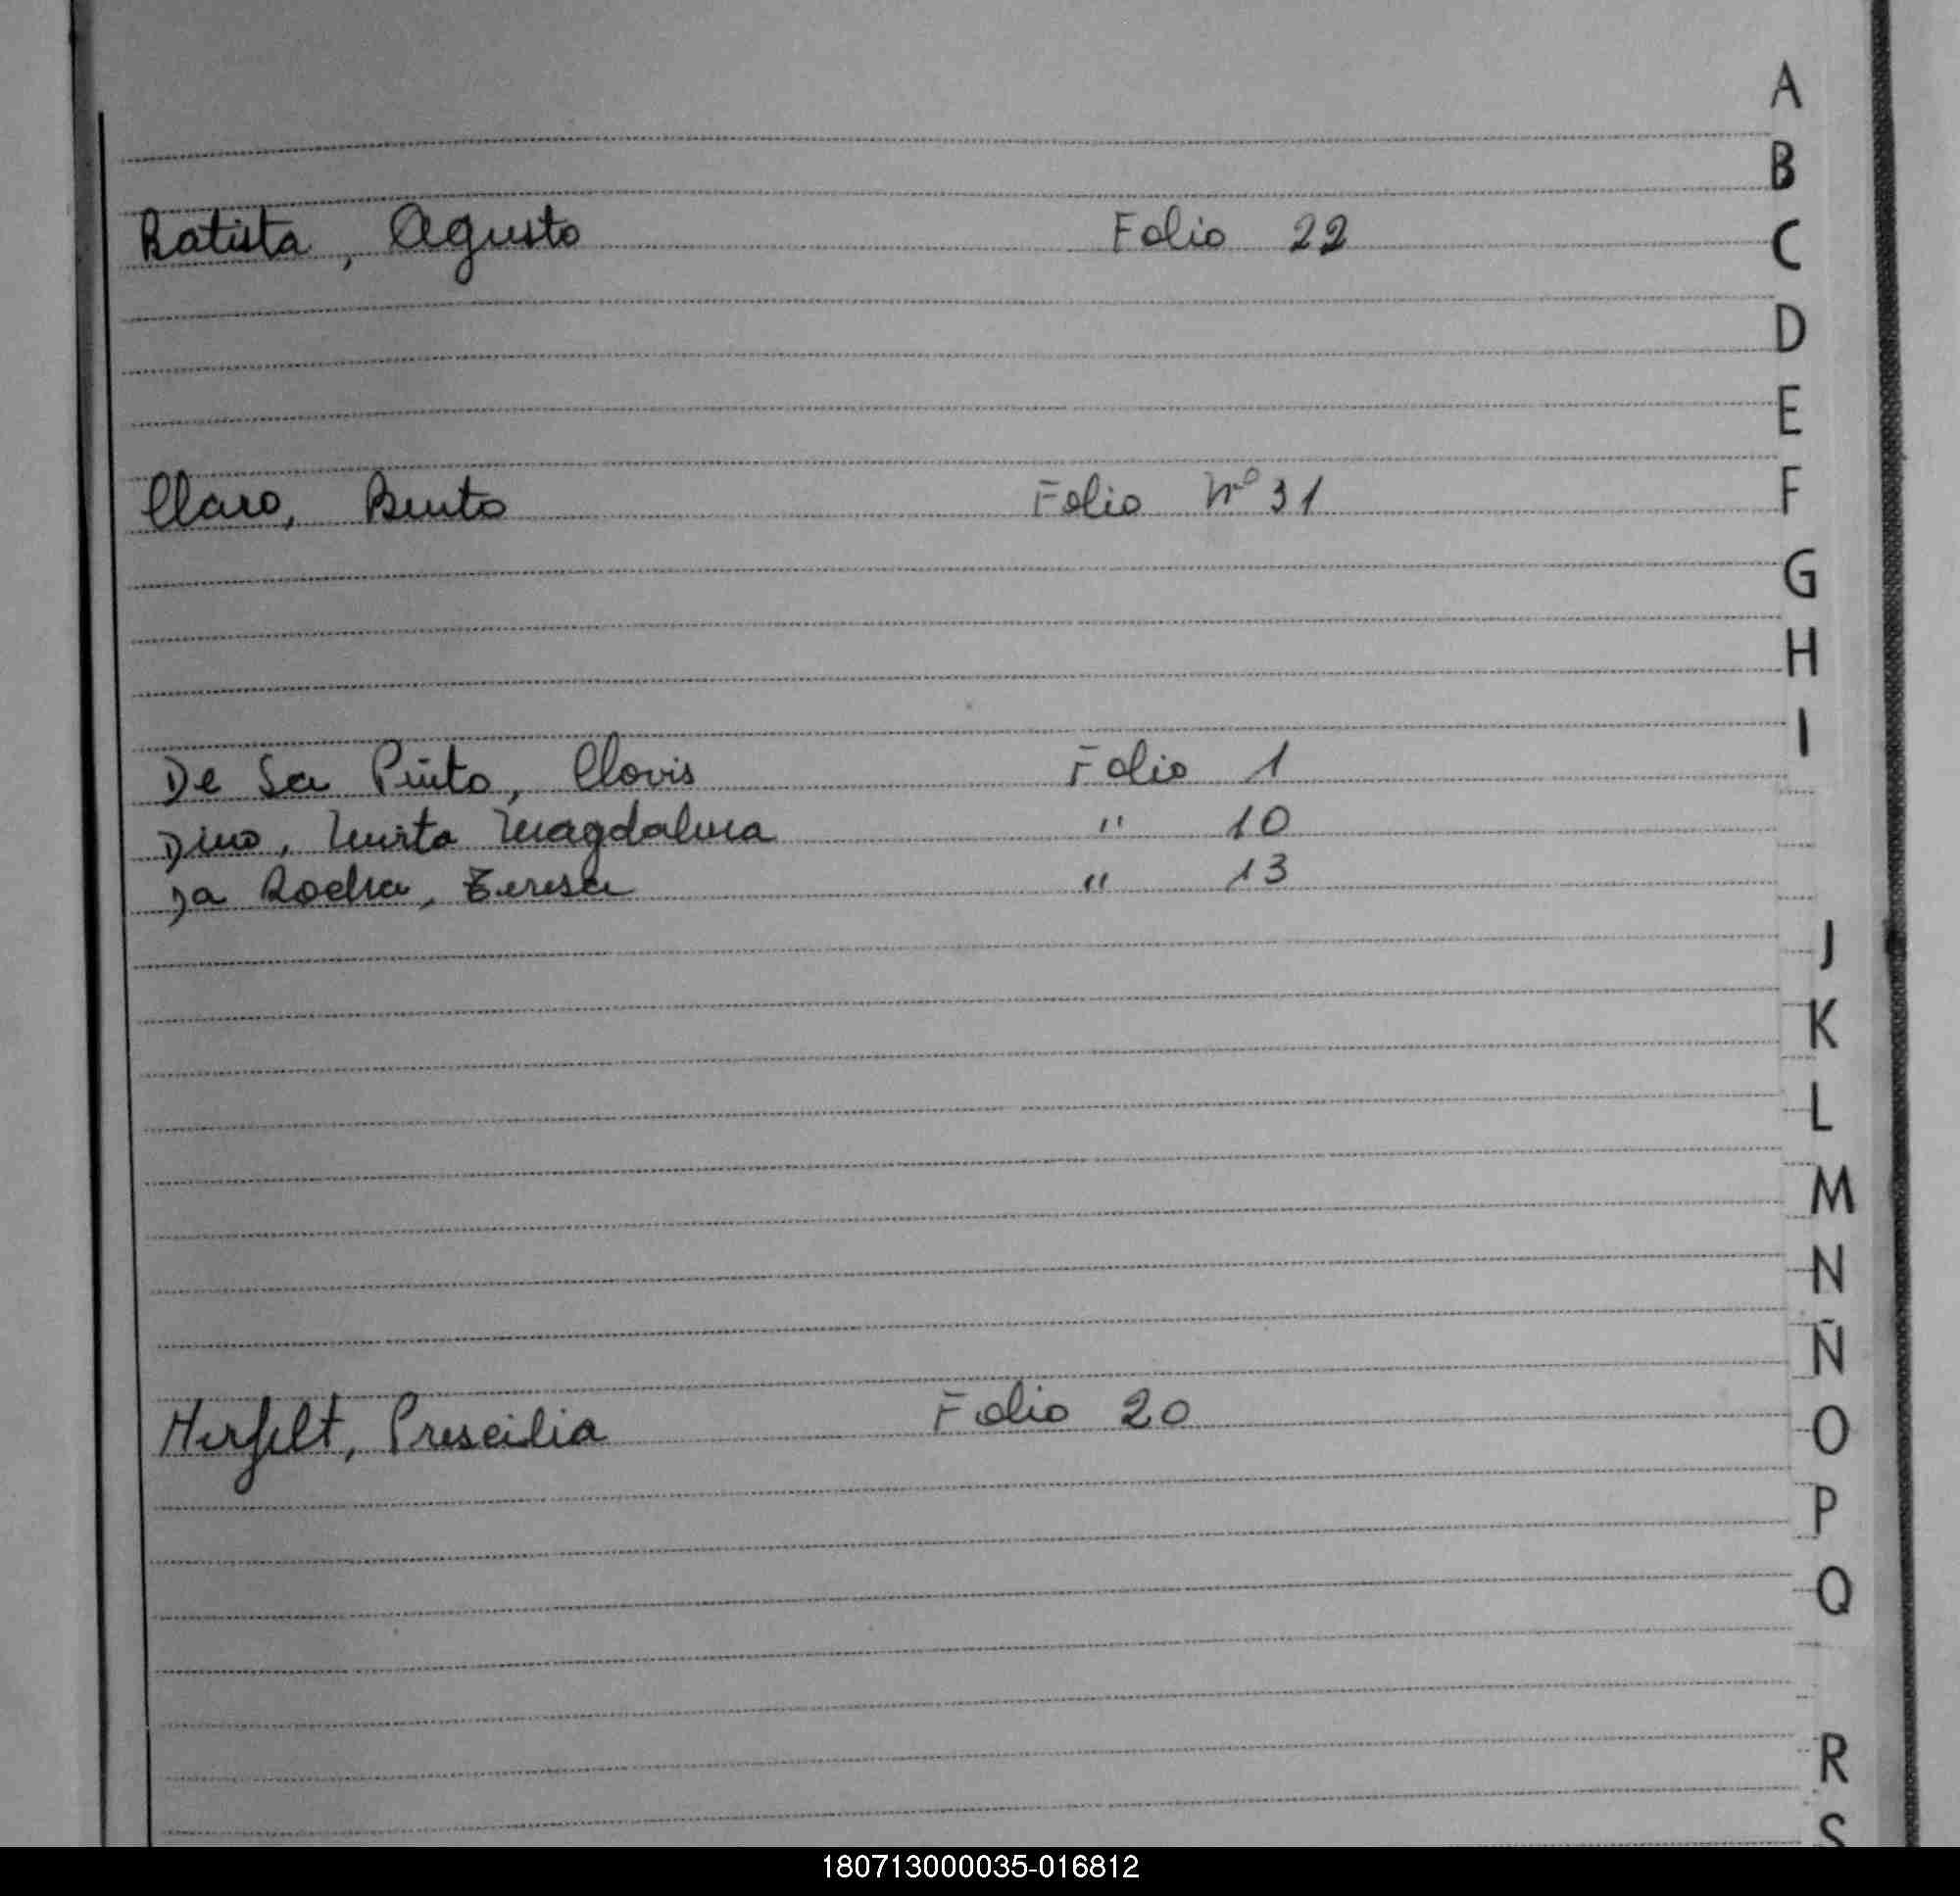 A
B
Batista, Agusto Folio 22
C
D
E
Claro, Bento Folio Nº 31
F
G
H
I
De Sa Pinto, Clovis Folio 1
Dino, Mirta Magdalena " 10
Da Rocha, Teresa " 13
J
K
L
M
N
Ñ
Herfelt, Prescilia Folio 20
O
P
Q
R
S
180713000035-016812